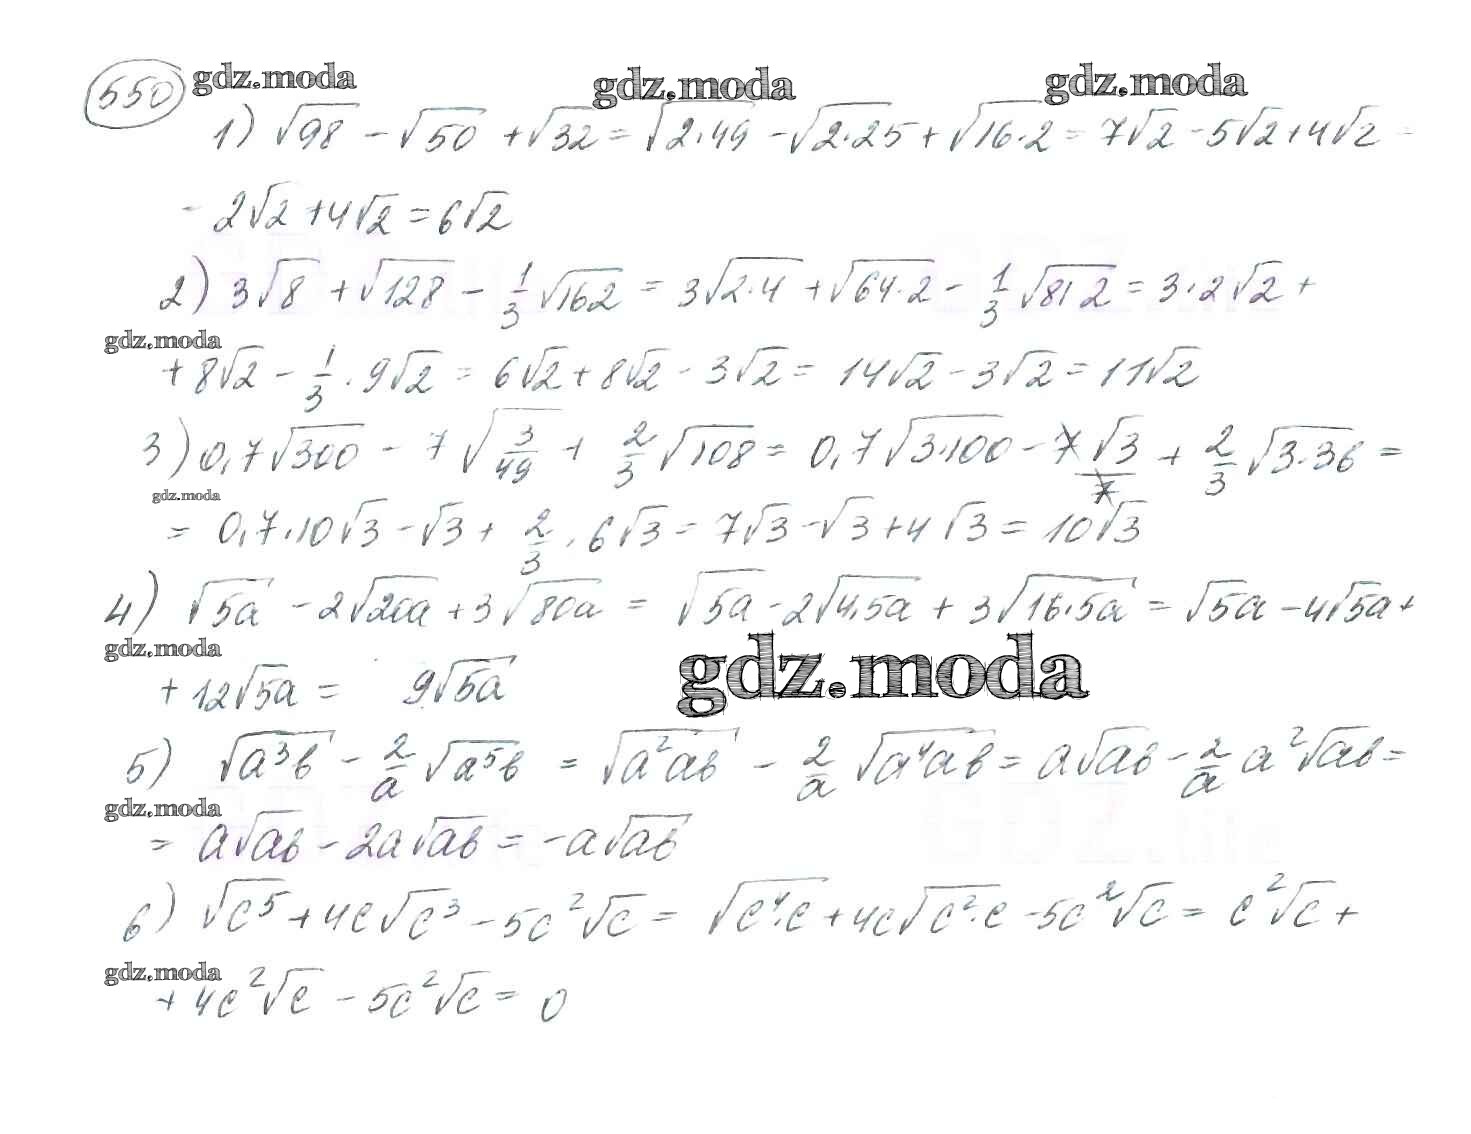 550 gdz.moda gdz.moda gdz.moda
1) √98 - √50 + √32 = √2·49 - √2·25 + √16·2 = 7√2 - 5√2 + 4√2 =
= 2√2 + 4√2 = 6√2
2) 3√8 + √128 - 1/3 √162 = 3√2·4 + √64·2 - 1/3 √81·2 = 3·2√2 +
gdz.moda
+ 8√2 - 1/3 · 9√2 = 6√2 + 8√2 - 3√2 = 14√2 - 3√2 = 11√2
3) 0,7√300 - 7√3/49 + 2/3 √108 = 0,7√3·100 - 7√3/7 + 2/3 √3·36 =
gdz.moda
= 0,7·10√3 - √3 + 2/3 · 6√3 = 7√3 - √3 + 4√3 = 10√3
4) √5a - 2√20a + 3√80a = √5a - 2√4·5a + 3√16·5a = √5a - 4√5a +
gdz.moda gdz.moda
+ 12√5a = 9√5a
5) √a³b - 2/a √a⁵b = √a²ab - 2/a √a⁴ab = a√ab - 2/a a²√ab =
gdz.moda
= a√ab - 2a√ab = -a√ab
6) √c⁵ + 4c√c³ - 5c²√c = √c⁴·c + 4c√c²·c - 5c²√c = c²√c +
gdz.moda
+ 4c²√c - 5c²√c = 0